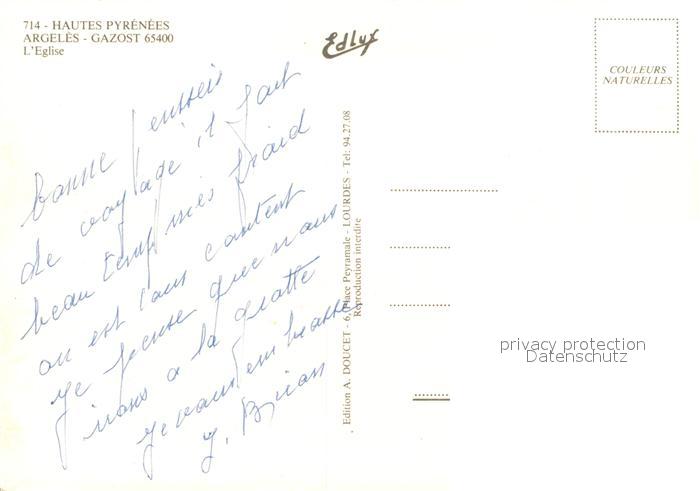 714 - HAUTES PYRÉNÉES
ARGELÈS - GAZOST 65400
L'Eglise
Edlux
COULEURS
NATURELLES
bonne penssés
de voyage il fait
beau temp mes fraid
on est tous contents
je pense que nous
irons a la gratte
je vous embrasse
J. Brian
Edition A. DOUCET - 6, Place Peyramale - LOURDES - Tel: 94.27.08
Reproduction interdite
privacy protection
Datenschutz